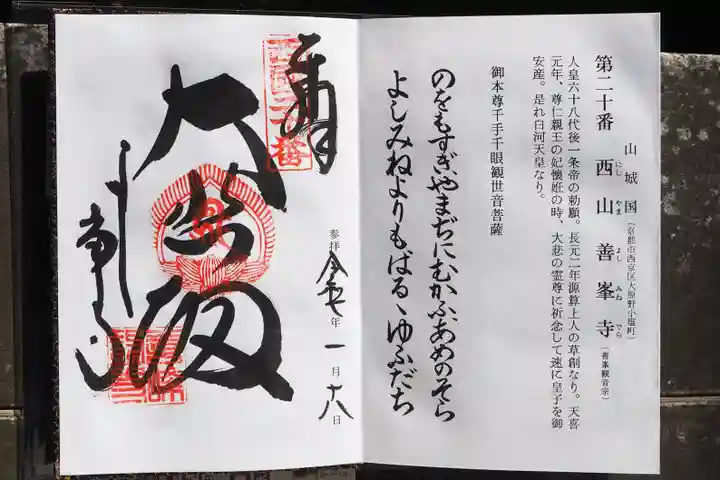 山城国（京都市西京区大原野小塩町）
第二十番 西山善峯寺（善峯観音宗）
にし やま よし みね でら
人皇六十八代後一条帝の勅願。長元二年源算上人の草創なり。天喜
元年、尊仁親王の妃懐姙の時、大悲の霊尊に祈念して速に皇子を御
安産。是れ白河天皇なり。
御本尊千手千眼観世音菩薩
のをもすぎやまぢにむかふあめのそら
よしみねよりもはるゝゆふだち
奉拝
西国二十番
参拝 令和七年 一月十八日
大悲殿